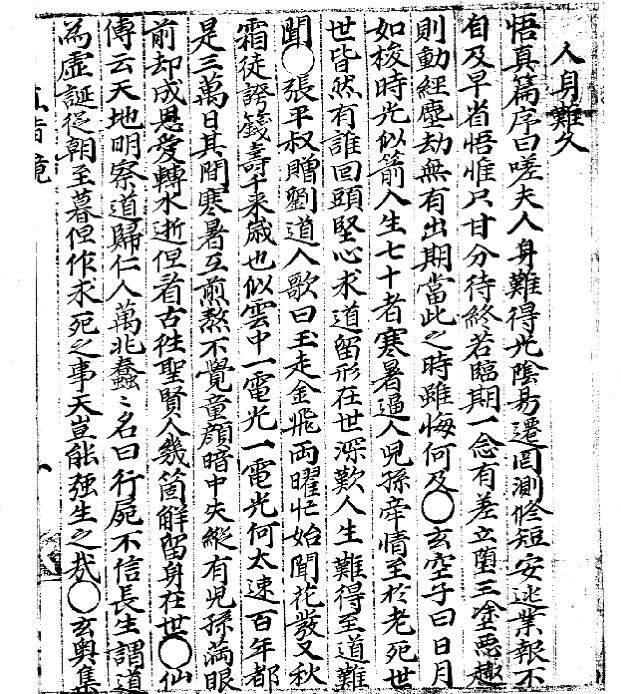 人身難久
悟真篇序曰嗟夫人身難得光陰易遷罔測脩短安逃業報不
自及早省悟惟只甘分待終若臨期一念有差立墮三塗惡趣
則動經塵劫無有出期當此之時雖悔何及〇玄空子曰日月
如梭時光似箭人生七十者寒暑逼人兒孫牽情至於老死世
世皆然有誰回頭堅心求道留形在世深歎人生難得至道難
聞〇張平叔贈劉道人歌曰玉走金飛兩曜忙始聞花發又秋
霜徒誇籛壽千來歲也似雲中一電光一電光何太速百年都
是三萬日其間寒暑互煎熬不覺童顏暗中失縱有兒孫滿眼
前却成恩愛轉水逝但看古徃聖賢人幾箇解留身在世〇仙
傳云天地明察道歸仁人萬兆蠢〻名曰行屍不信長生謂道
為虛誕從朝至暮但作求死之事天豈能强生之哉〇玄奧集